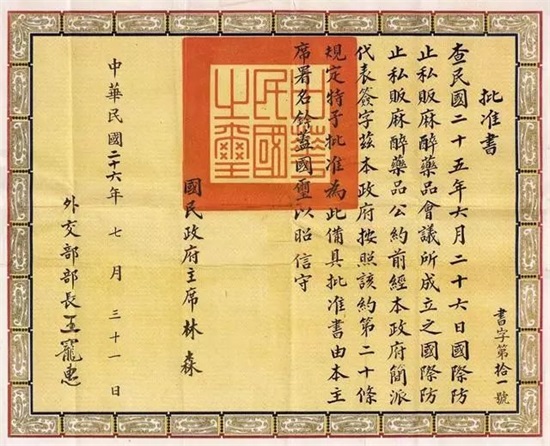 書字第拾一號
批准書
查民國二十五年六月二十六日國際防
止私販麻醉藥品會議所成立之國際防
止私販麻醉藥品公約前經本政府簡派
代表簽字茲本政府按照該約第二十條
規定特予批准為此備具批准書由本主
席署名鈐蓋國璽以昭信守
中華民國之璽
國民政府主席林森
中華民國二十六年七月三十一日
外交部部長王寵惠